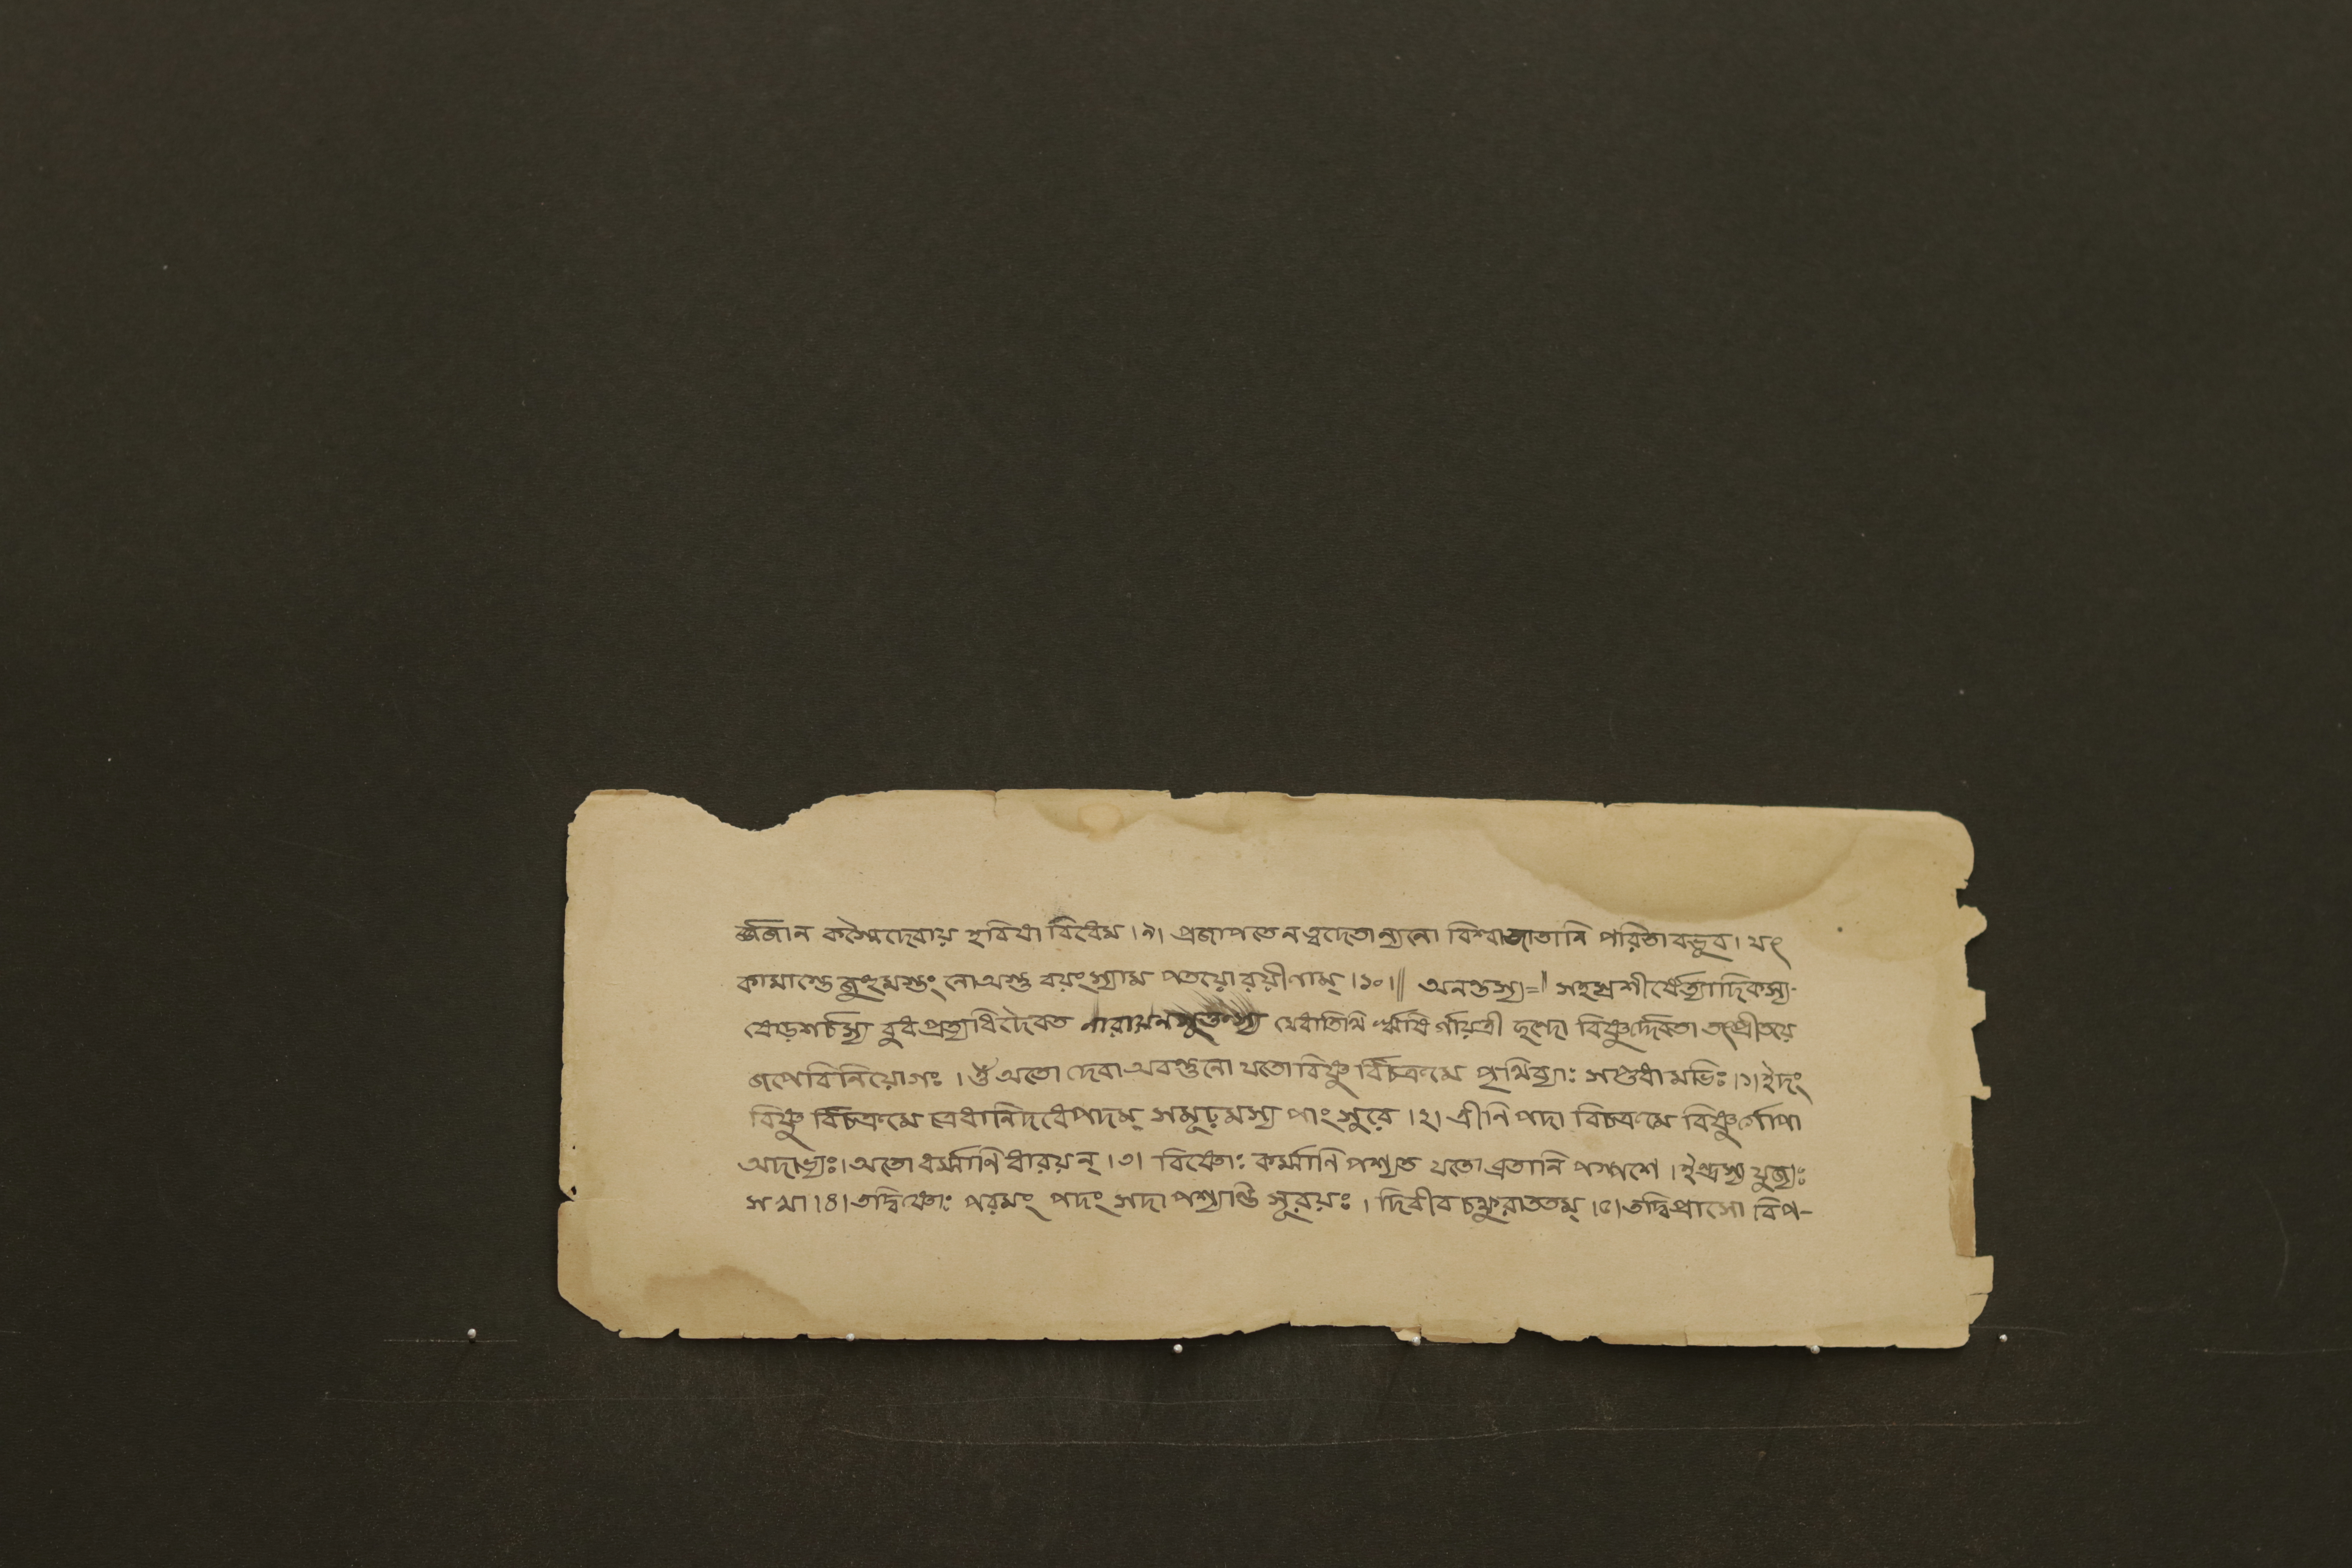 র্জ্জজান কস্মৈদেবায় হবিষা বিধেম।৯। প্রজাপতে ন ত্বদেতান্যন্যো বিশ্বাজাতানি পরিতা বভূব। যৎ
কামাস্তে জুহুমস্তং নো অস্তু বয়ংস্যাম পতয়ো রয়ীণাম্।১০।‖ অনন্তস্য=‖ সহস্রশীর্ষেত্যাদিকস্য-
ষোড়শর্চস্য বুধপ্রত্যধিদৈবত নারায়ন মেধাতিথি ঋষি র্গায়ত্রী ছন্দো বিষ্ণুর্দ্দেবতা তৎপ্রীতয়ে
জপেবিনিয়োগঃ। ওঁ অতো দেবা অবন্তুনো যতো বিষ্ণু র্বিচক্রমে পৃথিব্যাঃ সপ্তধামভিঃ।১।ইদং
বিষ্ণু র্বিচক্রমে ত্রেধানিদধেপদম্ সমূঢ়মস্য পাংসুরে।২। ত্রীনি পদা বিচক্রমে বিষ্ণুর্গোপা
অদাভ্যঃ।অতো ধর্ম্মাণি ধারয়ন্।৩। বিষ্ণোঃ কর্ম্মাণি পশ্যত যতো ব্রতানি পস্পশে। ইন্দ্রস্য যুজ্যঃ
সখা।৪।তদ্বিষ্ণোঃ পরমং পদং সদা পশ্যান্তি সূরয়ঃ। দিবীব চক্ষুরাততম্।৫।তদ্বিপ্রাসো বিপ-